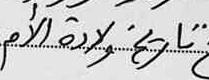 تاريخ ولادة الأم